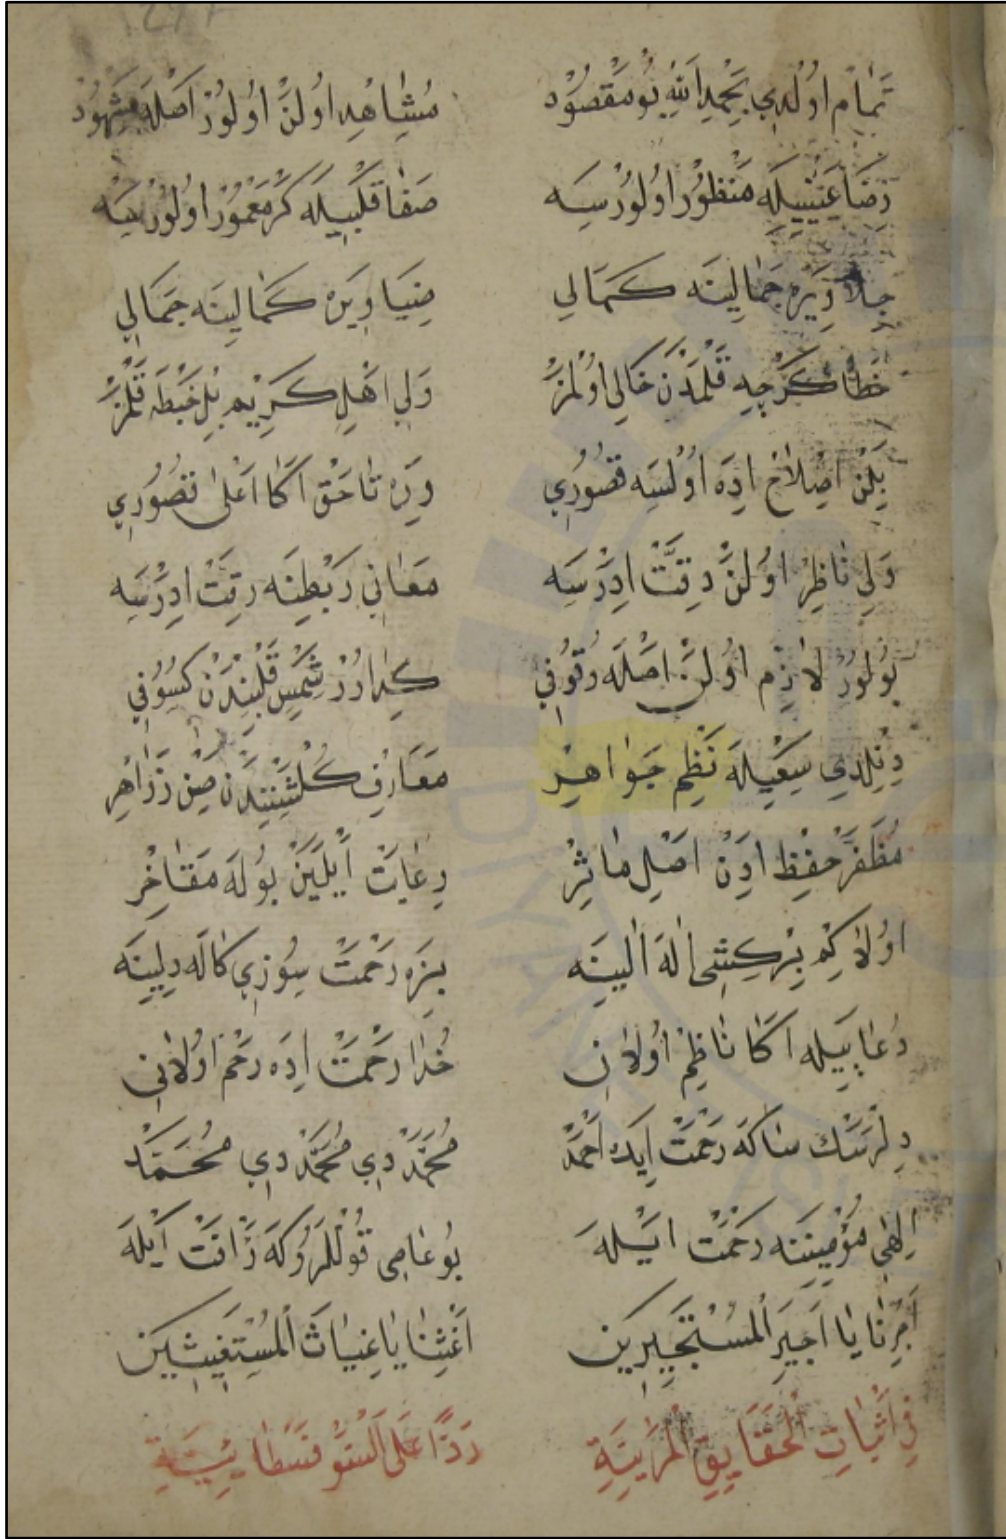 تمام اولدي بحمد الله بو مقصود مشاهد اولن اولور اصله مشهود
رضا عينيله منظور اولورسه صفا قلبيله كر معمور اولورسه
جلا ويره جمالينه كمالي ضيا ويره كمالينه جمالي
خطأ كرچه قلمدن خالي اولمز ولي اهل كريم بل خبطه قلمز
بلن اصلاح ايده اولسه قصوري ويره تا حق اكا اعلى قصوري
ولي ناظر اولن دقت ادرسه معاني ربطنه رقت ادرسه
بولور لازم اولن اصله وقوفي كيدرر شمس قلبندن كسوفي
دنلدي سعيله نظم جواهر معارف كلشنندن زواهر
مظفر حفظ ادن اصل مآثر رعايت ايلين بوله مفاخر
اولا كم بر كشي اله الينه بزه رحمت سوزي كاله دلينه
دعا بيله اكا ناظم اولاني خدا رحمت ايده رحم اولاني
دلرسك ساكه رحمت ايده احمد محمد دي محمد دي محمد
الهي مؤمنينه رحمت ايله بو عاصي قوللروكه رأفت ايله
اجرنا يا اجير المستجيرين اغثنا يا غياث المستغيثين
في اثبات الحقايق المرئية ردا على السوفسطائية